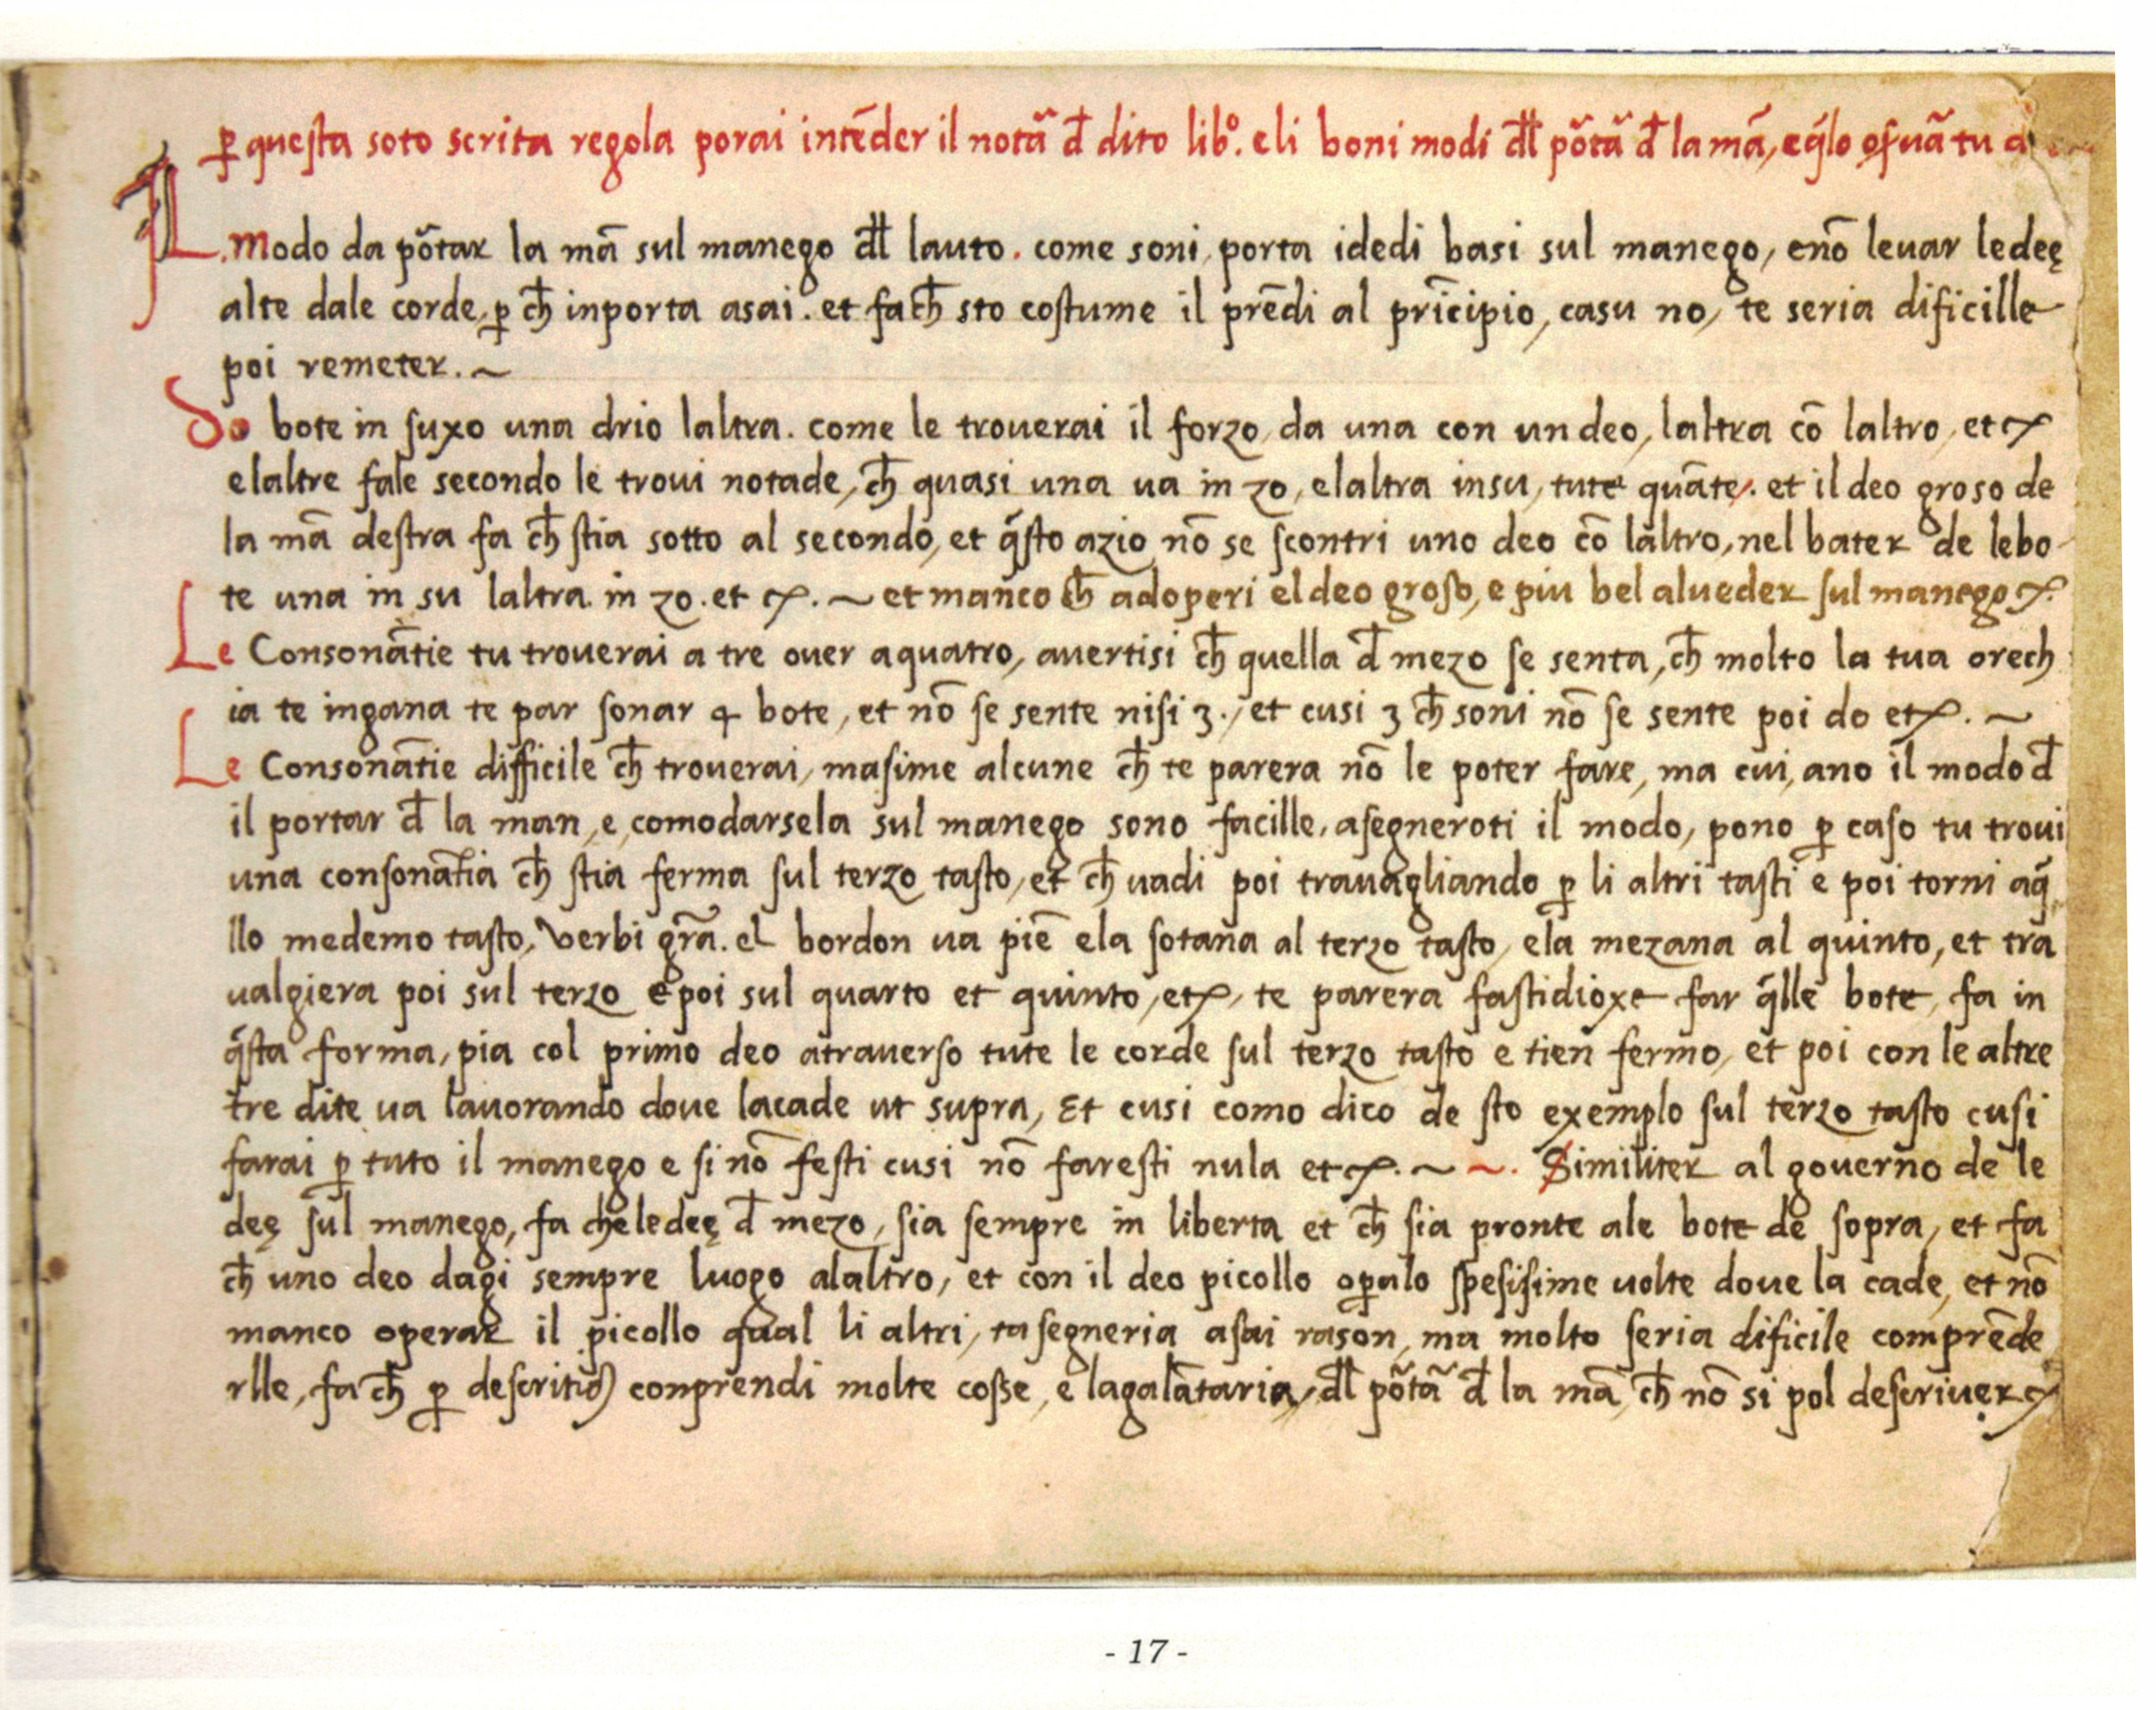 ꝑ questa soto scrita regola porai intēder il notā đ dito libº. e li boni modi đl pōtā đ la mā, e q̄lo tu
IL. modo da pōtar la mā sul manego đl lauto. come soni, porta i dedi basi sul manego, e nō leuar le deę
alte dale corde, ꝑ cħ inporta asai. et fa cħ sto costume il prēdi al prīcipio, casu no, te seria dificille
poi remeter. ~
Do bote in suxo una drio laltra. come le trouerai il forzo, da una con un deo, laltra cō laltro, et ꝛc
e laltre fale secondo le troui notade, cħ quasi una ua in zo, e laltra in su, tute quāte. et il deo groso de
la mā destra fa cħ stia sotto al secondo, et q̄sto azio nō se scontri uno deo cō laltro, nel bater de le bo
te una in su laltra in zo. et ꝛc. ~ et manco cħ adoperi el deo groso, e piu bel al ueder sul manego ꝛc.
Le Consonātie tu trouerai a tre ouer a quatro, auertisi cħ quella đ mezo se senta, cħ molto la tua orech
ia te ingana te par sonar 4 bote, et nō se sente nisi 3., et cusi 3 cħ soni nō se sente poi do et ꝛc. ~
Le Consonātie difficile cħ trouerai, masime alcune cħ te parera nō le poter fare, ma cui, ano il modo đ
il portar đ la man, e, comodarsela sul manego sono facille, asegneroti il modo, pono ꝑ caso tu troui
una consonātia cħ stia ferma sul terzo tasto, et cħ uadi poi trauagliando ꝑ li altri tasti e poi torni a q̄
llo medemo tasto, Verbi gr̄a. el bordon ua piē e la sotana al terzo tasto, e la mezana al quinto, et tra
ualgiera poi sul terzo e poi sul quarto et quinto, et ꝛc, te parera fastidioxe far q̄lle bote, fa in
q̄sta forma, pia col primo deo atrauerso tute le corde sul terzo tasto e tien fermo, et poi con le altre
tre dite ua lauorando doue la cade ut supra, Et cusi como dico de sto exemplo sul terzo tasto cusi
farai ꝑ tuto il manego e si nō festi cusi nō faresti nula et ꝛc. ~ ~. Similiter al gouerno de le
deę sul manego, fa che le deę đ mezo, sia sempre in liberta et cħ sia pronte ale bote de sopra, et fa
cħ uno deo dagi sempre luogo alaltro, et con il deo picollo oꝑalo spesisime uolte doue la cade, et nō
manco operar il picollo qual li altri, ta segneria asai rason, ma molto seria dificile comprēde
rlle, fa cħ ꝑ conprendi molte cosse, e la galātaria, đl pōtā đ la mā, cħ nō si pol descriuer ꝛc
- 17 -